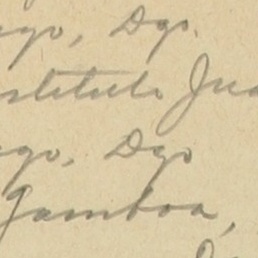 ngo, Dgo.
stituto Jua
ngo, Dgo
Gamboa,